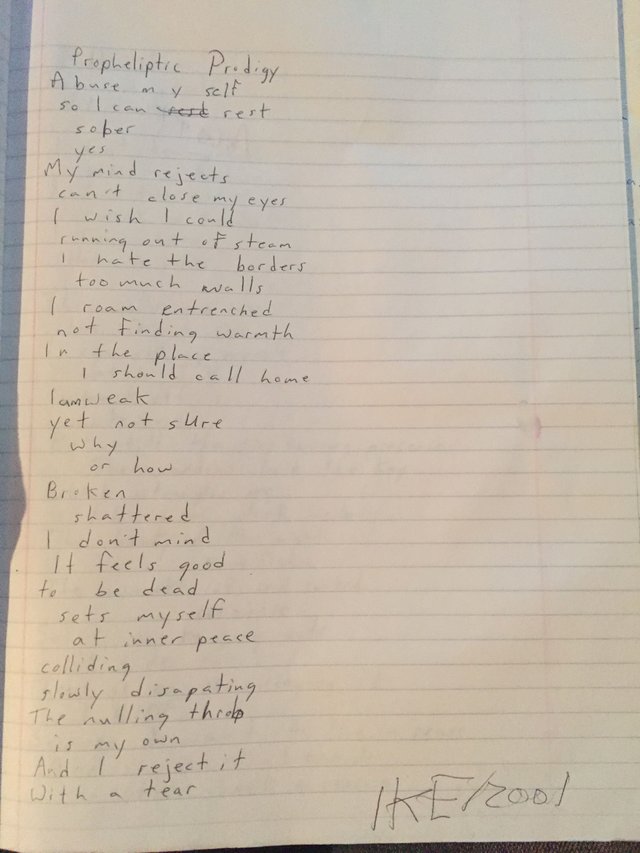 Propheliptic Prodigy
Abuse my self
so I can rest
sober
yes
My mind rejects
can't close my eyes
I wish I could
running out of steam
I hate the borders
too much walls
I roam entrenched
not finding warmth
In the place
I should call home
I am weak
yet not sure
why
or how
Broken
shattered
I don't mind
It feels good
to be dead
sets myself
at inner peace
colliding
slowly disapating
The nulling throb
is my own
And I reject it
With a tear
IKE/2001